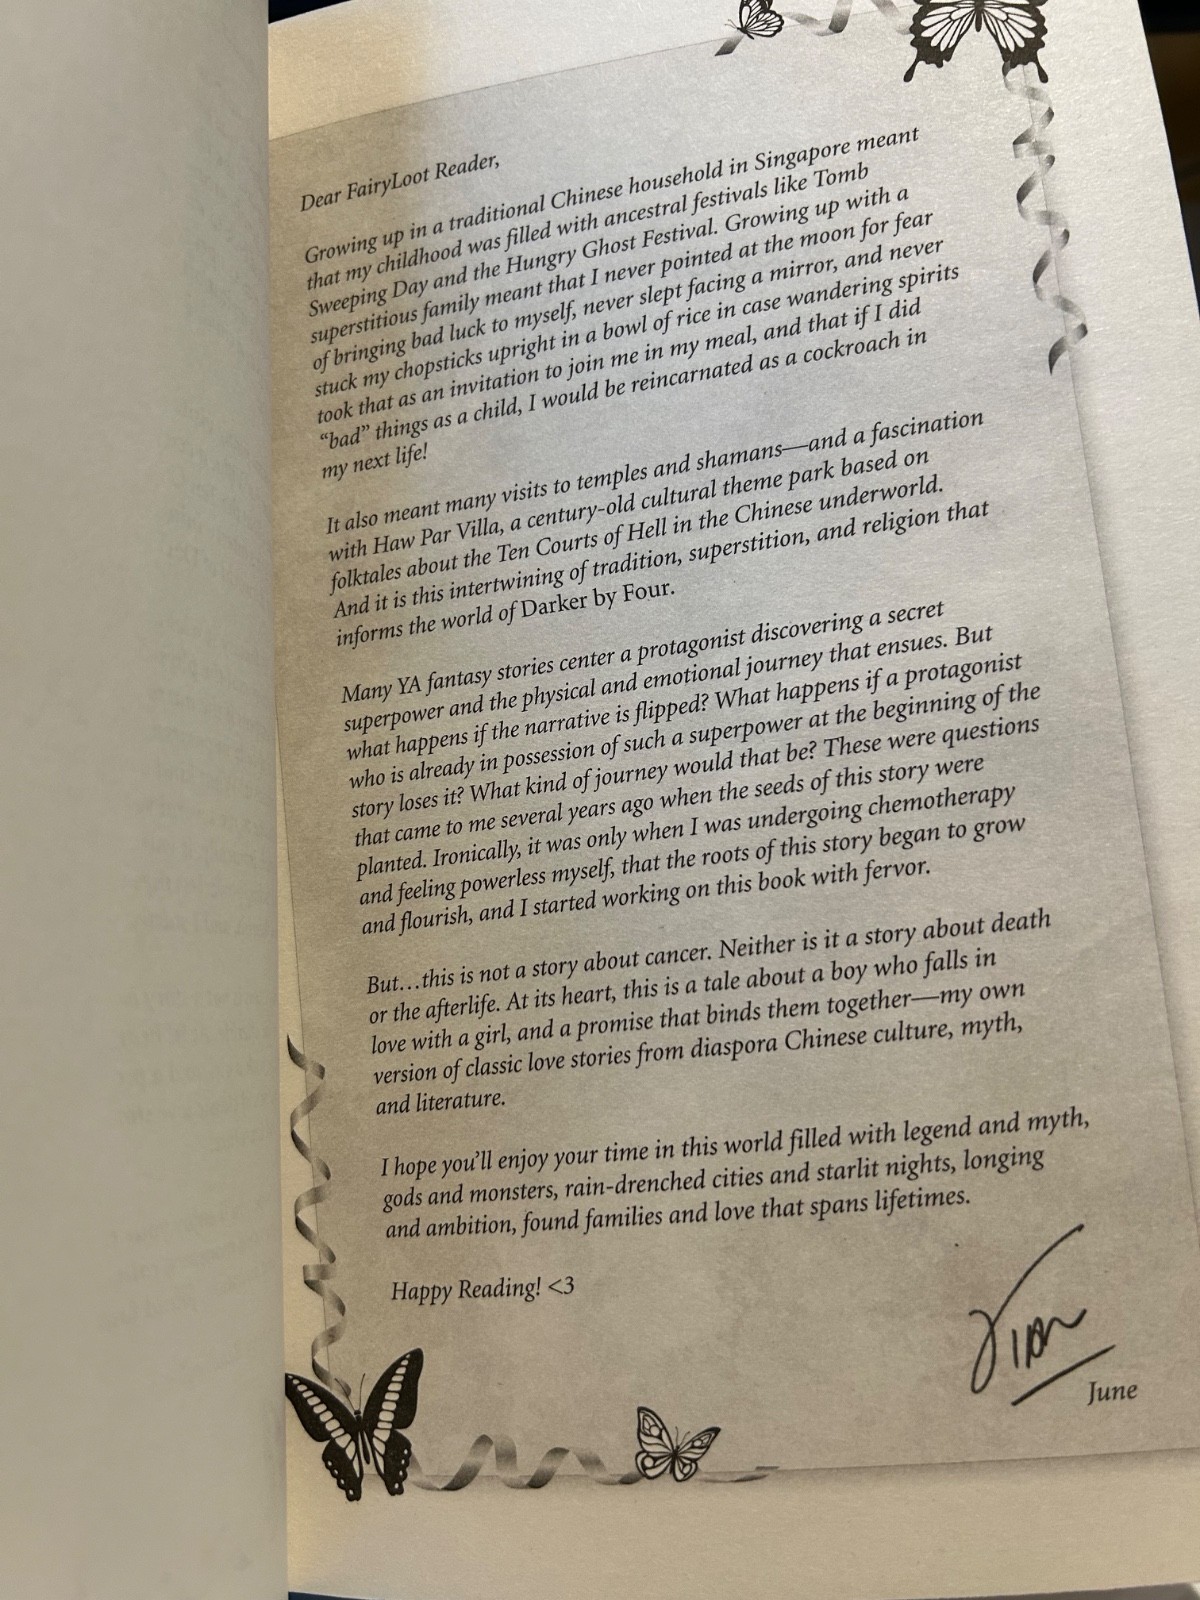 Dear FairyLoot Reader,
Growing up in a traditional Chinese household in Singapore meant
that my childhood was filled with ancestral festivals like Tomb
Sweeping Day and the Hungry Ghost Festival. Growing up with a
superstitious family meant that I never pointed at the moon for fear
of bringing bad luck to myself, never slept facing a mirror, and never
stuck my chopsticks upright in a bowl of rice in case wandering spirits
took that as an invitation to join me in my meal, and that if I did
“bad” things as a child, I would be reincarnated as a cockroach in
my next life!
It also meant many visits to temples and shamans—and a fascination
with Haw Par Villa, a century-old cultural theme park based on
folktales about the Ten Courts of Hell in the Chinese underworld.
And it is this intertwining of tradition, superstition, and religion that
informs the world of Darker by Four.
Many YA fantasy stories center a protagonist discovering a secret
superpower and the physical and emotional journey that ensues. But
what happens if the narrative is flipped? What happens if a protagonist
who is already in possession of such a superpower at the beginning of the
story loses it? What kind of journey would that be? These were questions
that came to me several years ago when the seeds of this story were
planted. Ironically, it was only when I was undergoing chemotherapy
and feeling powerless myself, that the roots of this story began to grow
and flourish, and I started working on this book with fervor.
But…this is not a story about cancer. Neither is it a story about death
or the afterlife. At its heart, this is a tale about a boy who falls in
love with a girl, and a promise that binds them together—my own
version of classic love stories from diaspora Chinese culture, myth,
and literature.
I hope you’ll enjoy your time in this world filled with legend and myth,
gods and monsters, rain-drenched cities and starlit nights, longing
and ambition, found families and love that spans lifetimes.
Happy Reading! <3
June